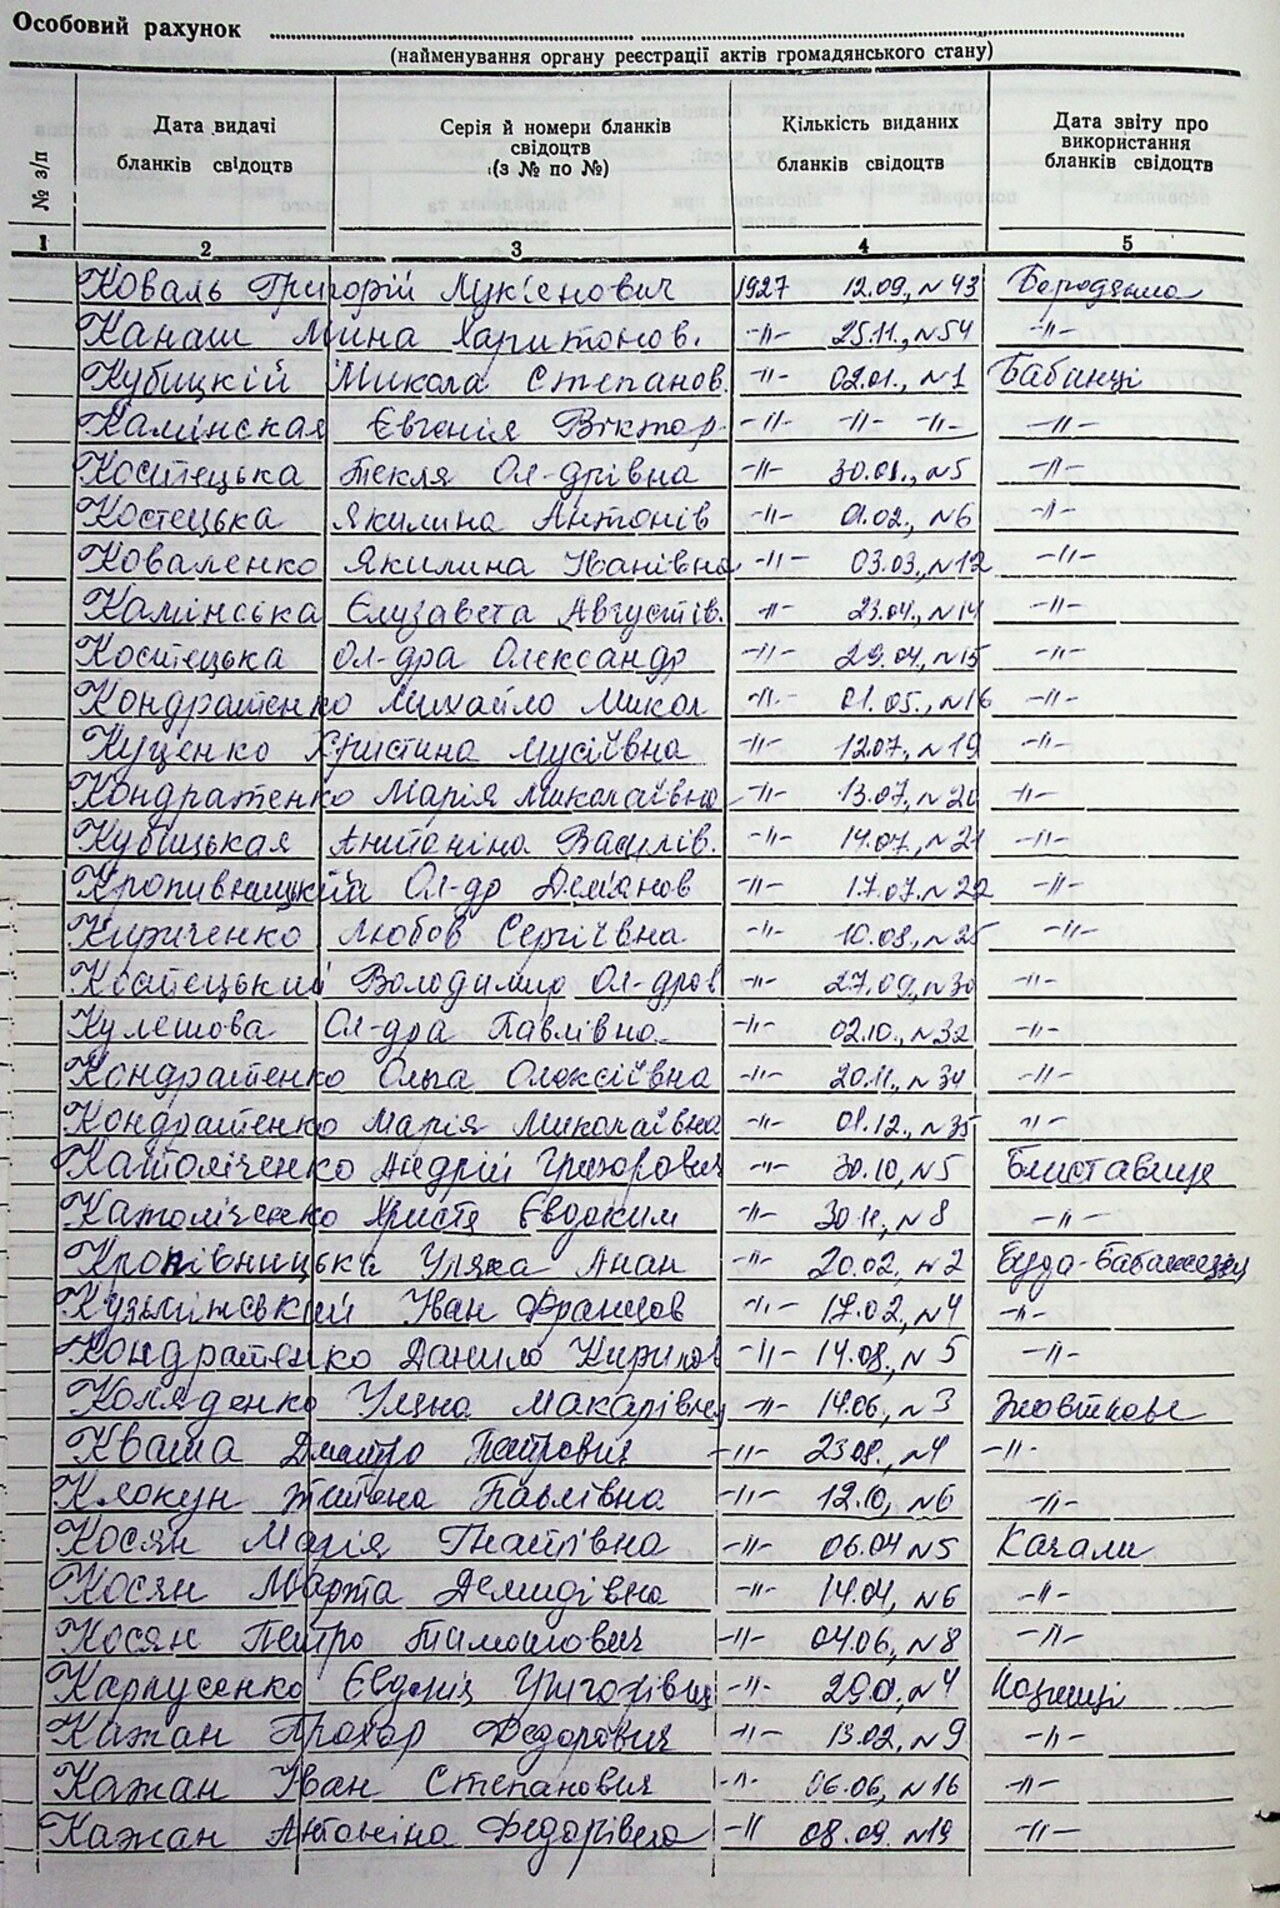 Особовий рахунок
(найменування органу реєстрації актів громадянського стану)
№ з/п
Дата видачі бланків свідоцтв
Серія й номери бланків свідоцтв (з № по №)
Кількість виданих бланків свідоцтв
Дата звіту про використання бланків свідоцтв
1 2 3 4 5
Коваль Григорій Лук'янович 1927 12.09., N 43 Бородянка
Канаш Мина Харитонов. -"- 25.11., N54 -"-
Кубицкій Микола Степанов. -"- 02.01., N1 Бабинці
Камінская Євгенія Віктор -"- -"- -"- -"-
Костецька Текля Ол-дрівна -"- 30.01., N5 -"-
Костецька Якилина Антонів -"- 01.02., N6 -"-
Коваленко Якилина Іванівна -"- 03.03., N12 -"-
Камінська Єлизавета Августів. -"- 23.04., N14 -"-
Костецька Ол-дра Олександр -"- 29.04., N15 -"-
Кондратенко Михайло Микол -"- 01.05., N16 -"-
Куценко Христина Мусіївна -"- 12.07., N19 -"-
Кондратенко Марія Миколаївна -"- 13.07., N20 -"-
Кубіцькая Антоніна Василів. -"- 14.07., N21 -"-
Кропивницький Ол-др Дем'янов -"- 17.07. N22 -"-
Кириченко Любов Сергіївна -"- 10.08., N25 -"-
Костецький Володимир Ол-дров -"- 27.09., N30 -"-
Кулешова Ол-дра Павлівна -"- 02.10., N32 -"-
Кондратенко Ольга Олексіївна -"- 20.11., N34 -"-
Кондратенко Марія Миколаївна -"- 01.12., N35 -"-
Католіченко Андрій Григорович -"- 30.10., N5 Блиставиця
Католіченко Христя Євдоким -"- 30.11., N8 -"-
Кропівницька Уляна Анан -"- 20.02., N2 Буда-Бабинецька
Кузьмітський Іван Францов -"- 17.02., N4 -"-
Кондратенко Данило Кирилов -"- 14.08., N5 -"-
Коляденко Уляна Макарівна -"- 14.06., N3
Кваша Дмитро Петрович -"- 23.08., N4 -"-
Клокун Тетяна Павлівна -"- 12.10., N6 -"-
Косян Марія Гнатівна -"- 06.04 N5 Качали
Косян Марта Демидівна -"- 14.04, N6 -"-
Косян Петро Тимошович -"- 04.06., N8 -"-
Карпусенко Євдокія Григорівна -"- N4
Кажан Прохор Федорович -"- 13.02., N9 -"-
Кажан Іван Степанович -"- 06.06, N16 -"-
Кажан Антоніна Федорівна -" 08.09. N19 -"-